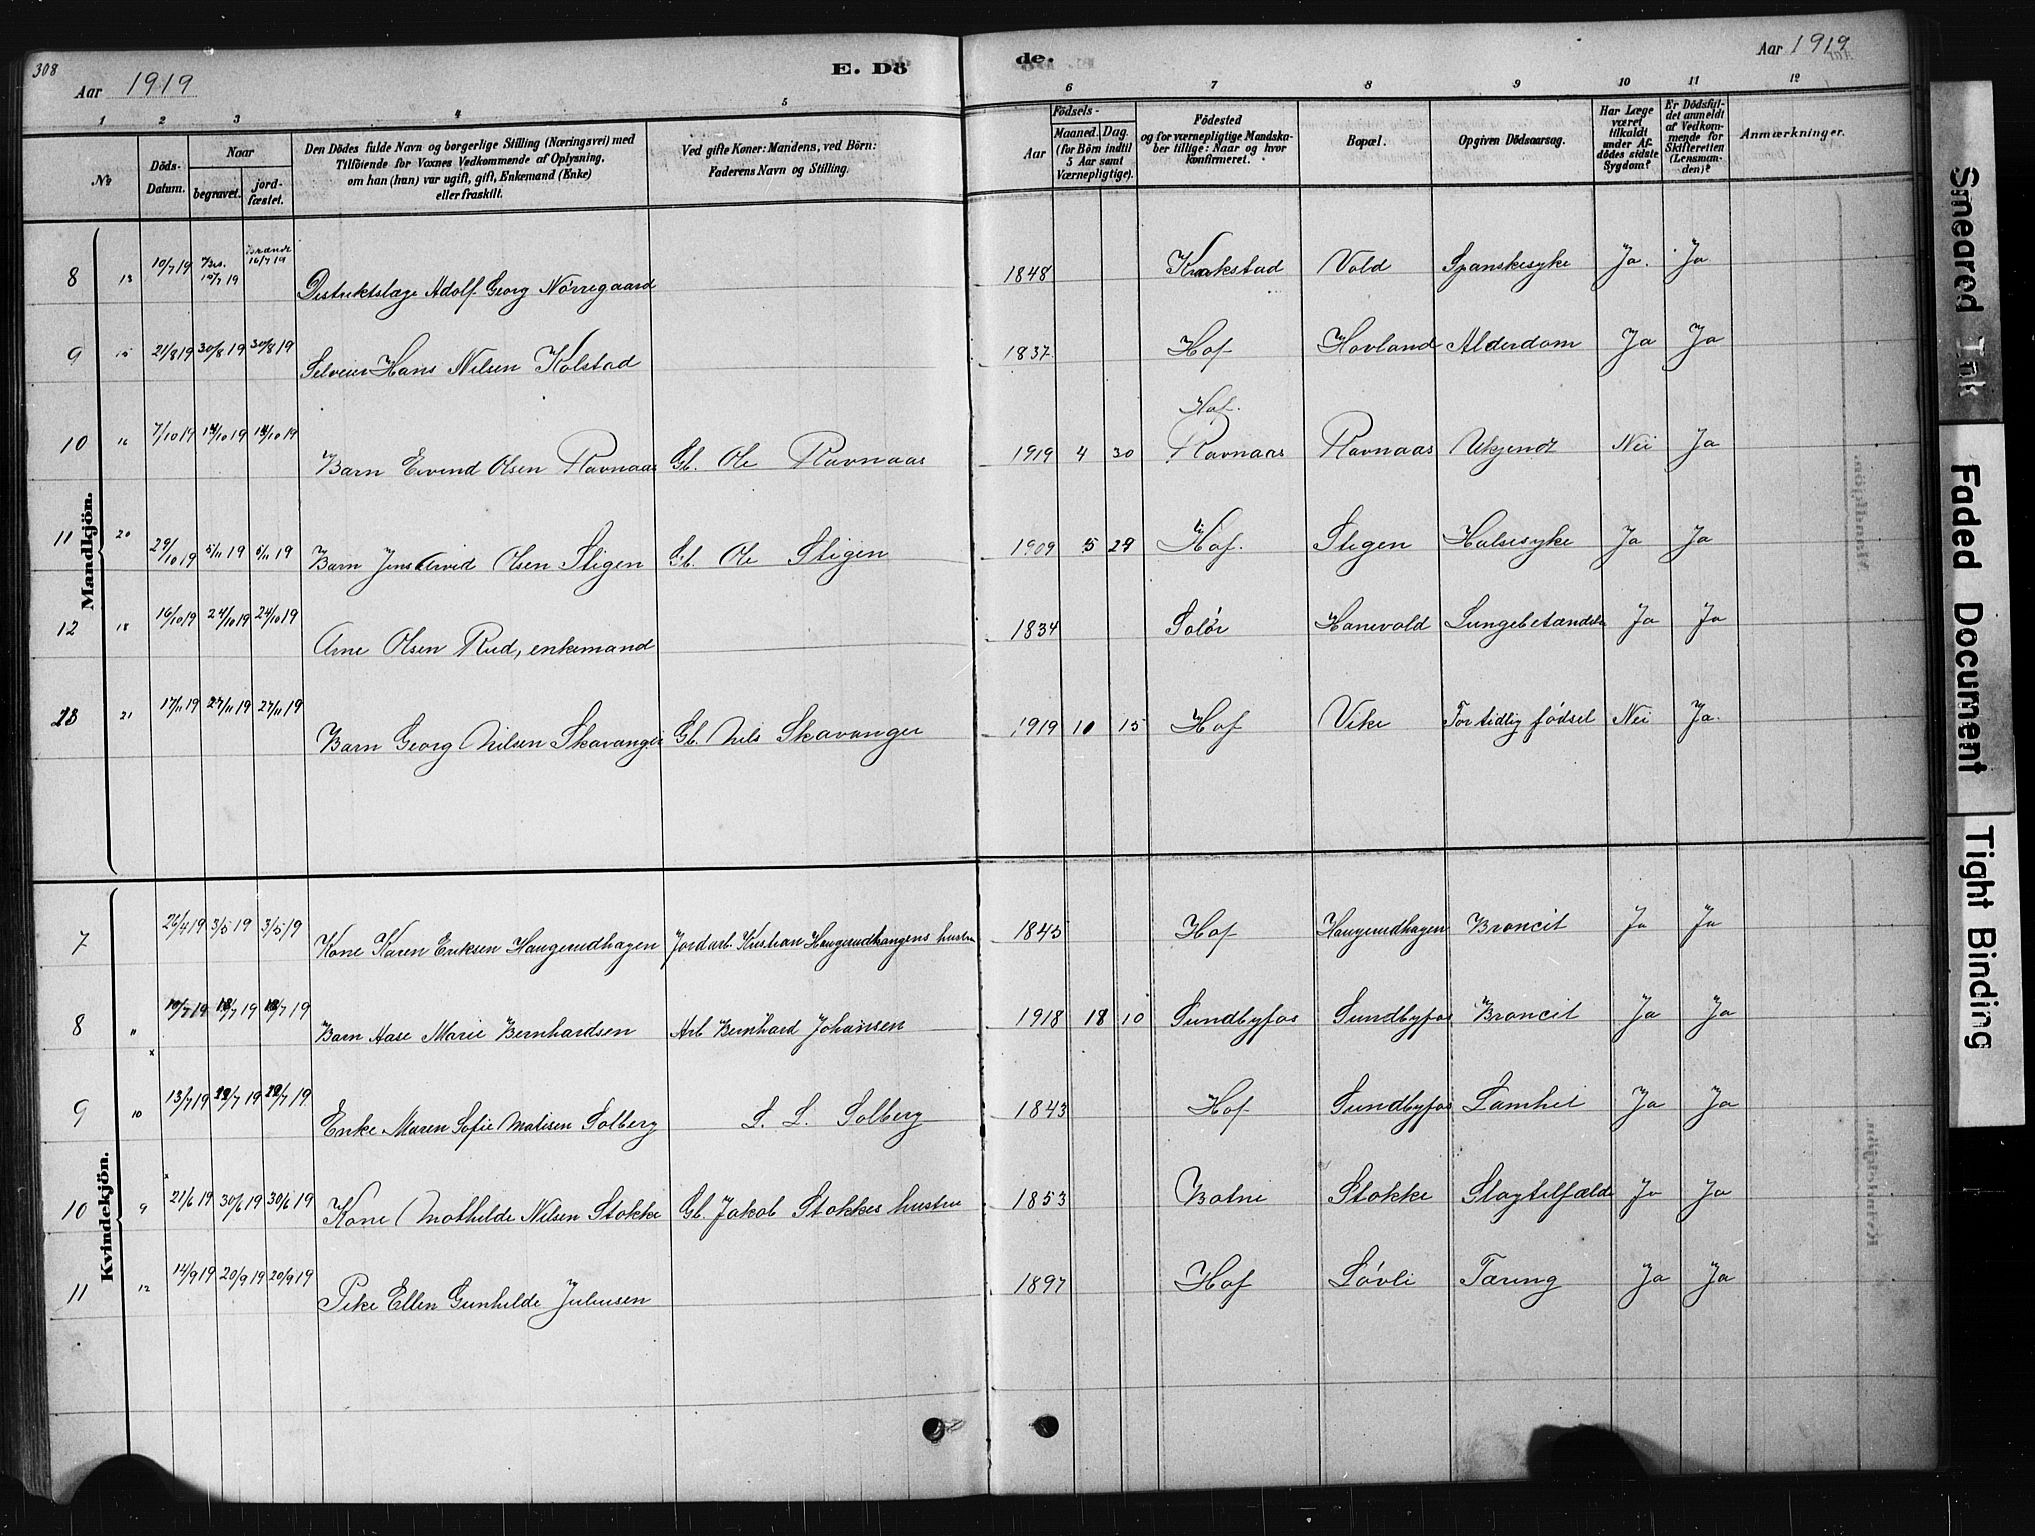 308
Aar 1919
E. Dö
de.
Aar 1919
1 2 3 4 5 6 7 8 9 10 11 12
No
Döds-
Datum.
Naar
begravet.
jord-
fæstet.
Den Dödes fulde Navn og borgerlige Stilling (Næringsvei) med
Tilföiende for Voxnes Vedkommende af Oplysning,
om han (hun) var ugift, gift, Enkemand (Enke)
eller fraskilt.
Ved gifte Koner: Mandens, ved Börn:
Faderens Navn og Stilling.
Födsels-
Aar
Maaned. Dag.
(for Börn indtil
5 Aar samt
Værnepligtige).
Födested
og for værnepligtige Mandska-
ber tillige: Naar og hvor
Konfirmeret.
Bopæl.
Opgiven Dödsaarsag.
Har Læge
været
tilkaldt
under Af-
dödes sidste
Sygdom?
Er Dödsfal-
det anmeldt
af Vedkom-
mende for
Skifteretten
(Lensman-
den)?
Anmærkninger.
Mandkjön.
8 13 10/7 19 Distriktslæge Adolf Georg Nörregaard 1848 Krakstad Vold Spanskesyke Ja. Ja
9 15 21/8 19 30/8 19 30/8 19 Selveier Hans Nilsen Kolstad 1837 Hof Hovland Alderdom Ja Ja
Hof.
10 16 7/10 19 14/10 19 14/10 19 Barn Eivind Olsen Ravnaas Gb. Ole Ravnaas 1919 4 30 Ravnaas Ravnaas Ukjendt Nei Ja
11 20 29/10 19 5/11 19 5/11 19 Barn Jens Arvid Olsen Stigen Gb. Ole Stigen 1909 5 29 Hof. Stigen Halsesyke Ja Ja
12 18 16/10 19 24/10 19 24/10 19 Arne Olsen Rud, enkemand 1834 Solör Hanevold Lungebetændelse Ja Ja
13 21 17/11 19 27/11 19 27/11 19 Barn Georg Nilsen Skavanger Gb. Nils Skavanger 1919 10 15 Hof Vike For tidlig fødsel Nei Ja.
Kvindekjön.
7 26/4 19 3/5 19 3/5 19 Kone Karen Eriksen Haugerudhagen Jordarb. Kristian Haugerudhangens hustru 1845 Hof Haugerudhagen Broncit Ja Ja
8 " 10/7 19 18/7 19 18/7 19 Barn Aase Marie Bernhardsen Arb Bernhard Johansen 1918 18 10 Sundbyfos Sundbyfos Broncit Ja Ja
9 10 13/7 19 /7 19 /7 19 Enke Maren Sofie Matisen Solberg S. L. Solberg 1843 Hof Sundbyfos Lamhet Ja Ja
10 9 21/6 19 30/6 19 30/6 19 Kone Mathilde Nilsen Stokke Gb. Jakob Stokkes hustru 1853 Botne Stokke Slagtilfælde Ja Ja
11 12 14/9 19 20/9 19 20/9 19 Pike Ellen Gunhilde Juliusen 1897 Hof Lövli Tæring Ja Ja
Smeared Ink
Faded Document
Tight Binding